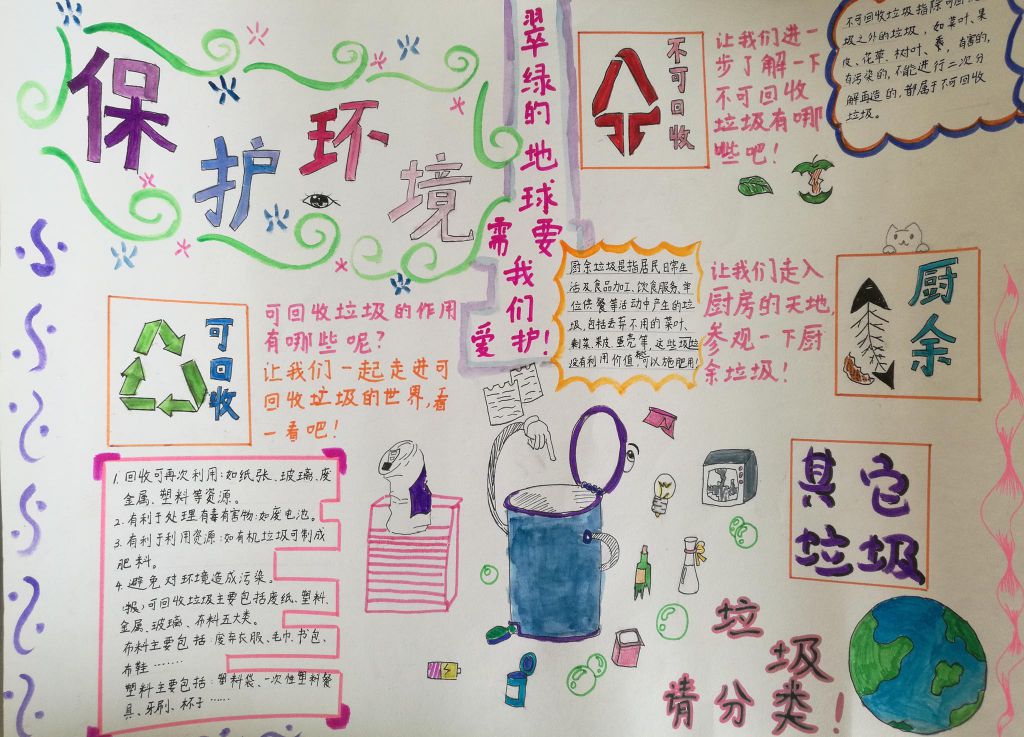 保护环境
翠绿的地球要
需我们
爱护！
不可回收
让我们进一
步了解一下
不可回收
垃圾有哪
些吧！
不可回收垃圾指除可回收垃
圾之外的垃圾，如菜叶、果
皮、花草、树叶、有害的，
有污染的，不能进行二次分
解再造的，都属于不可回收
垃圾。
可回收
可回收垃圾的作用
有哪些呢？
让我们一起走进可
回收垃圾的世界，看
一看吧！
厨余垃圾是指居民日常生
活及食品加工、饮食服务、单
位供餐等活动中产生的垃
圾，包括丢弃不用的菜叶、
剩菜、果皮、蛋壳等，这些垃圾
没有利用价值，可以施肥用！
让我们走入
厨房的天地，
参观一下厨
余垃圾！
厨余
1. 回收可再次利用：如纸张、玻璃、废
金属、塑料等资源。
2. 有利于处理有毒有害物：如废电池。
3. 有利于利用资源：如有机垃圾可制成
肥料。
4. 避免对环境造成污染。
可回收垃圾主要包括废纸、塑料、
金属、玻璃、布料五大类。
布料主要包括：废弃衣服、毛巾、书包、
布鞋……
塑料主要包括：塑料袋、一次性塑料餐
具、牙刷、杯子……
其它
垃圾
垃圾
请分类！